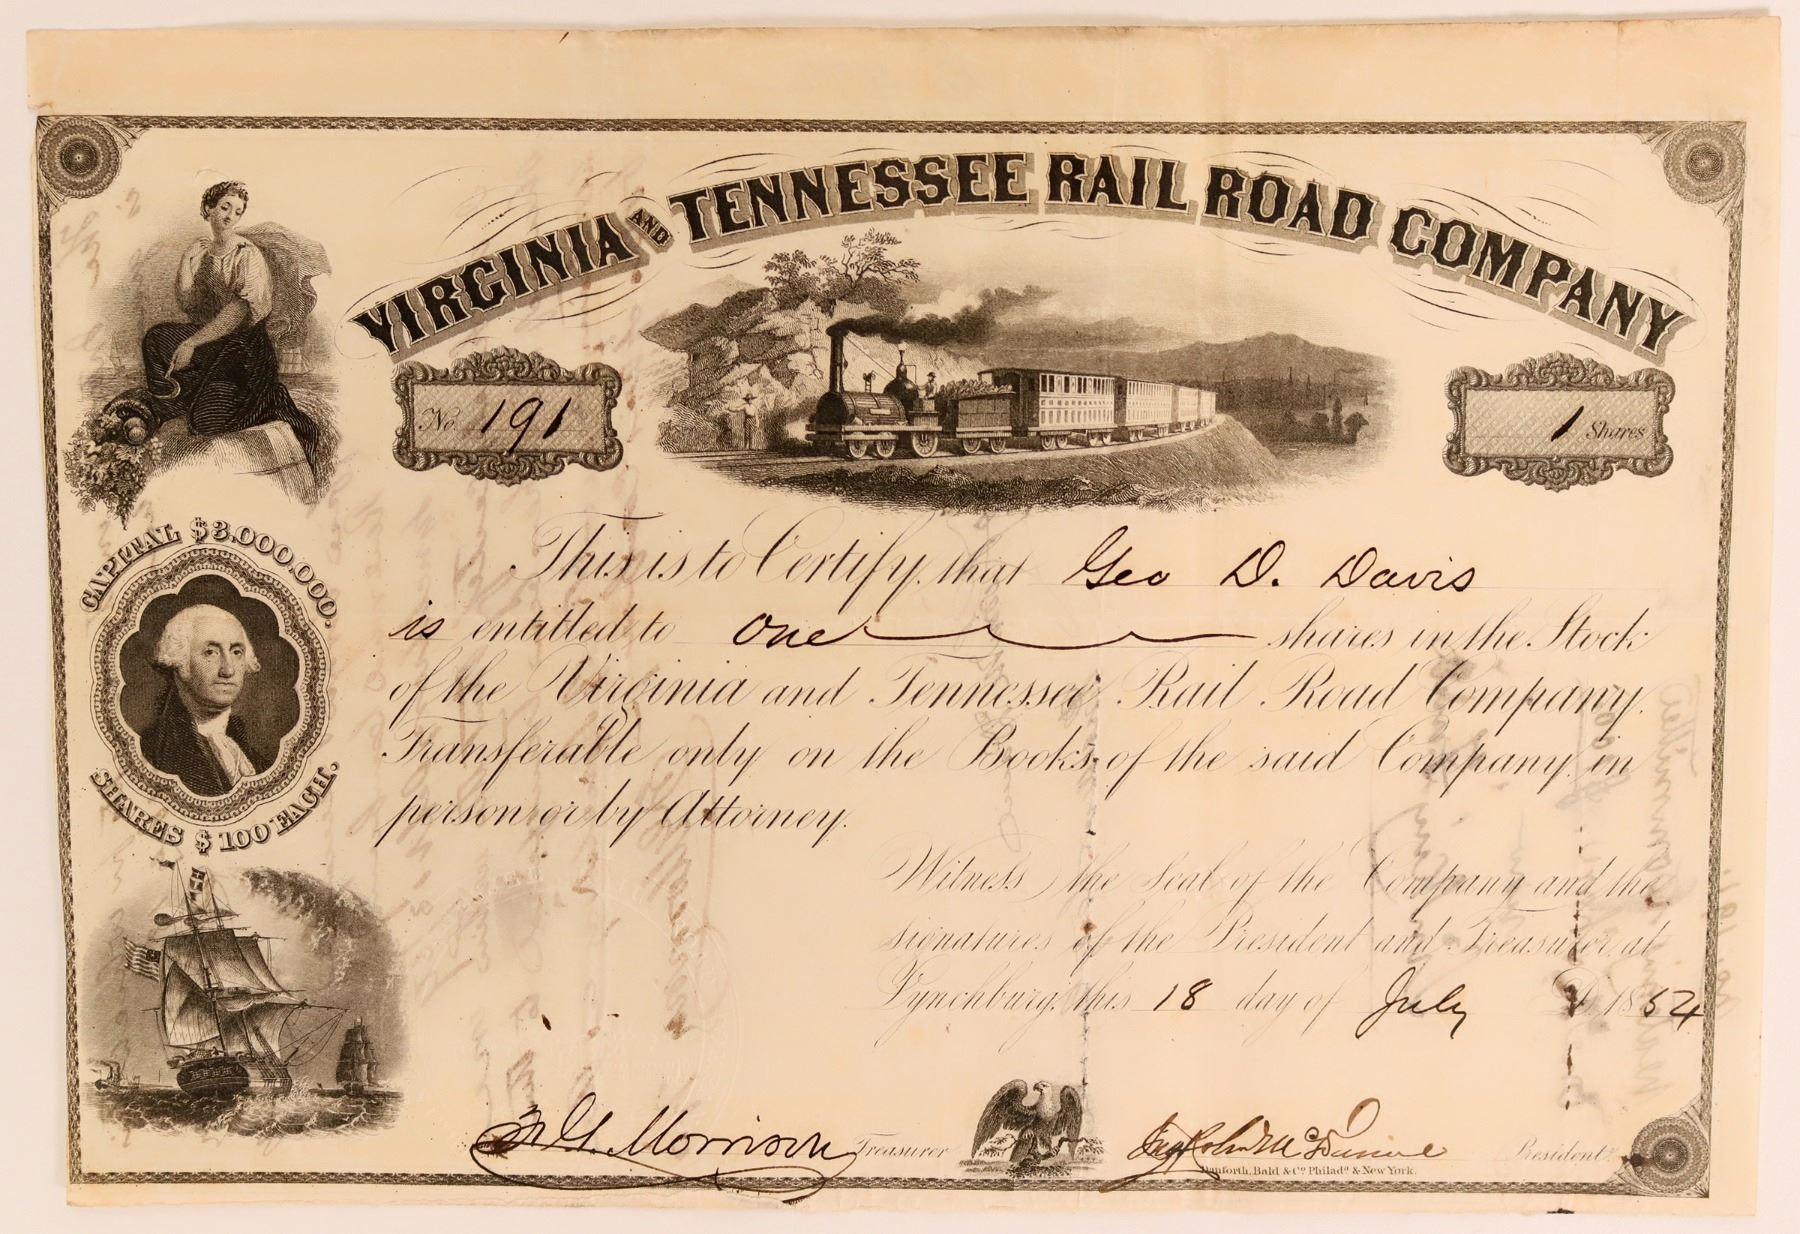 VIRGINIA AND TENNESSEE RAIL ROAD COMPANY
No. 191
1 Shares
CAPITAL $3.000.000.
SHARES $100 EACH.
This is to Certify that Geo D. Davis
is entitled to One shares in the Stock
of the Virginia and Tennessee Rail Road Company.
Transferable only on the Books of the said Company in
person or by Attorney.
Witness the Seal of the Company and the
signatures of the President and Treasurer at
Lynchburg, this 18 day of July 1854
Morrison Treasurer
McDaniel President
Danforth, Bald & Co. Philada. & New York.